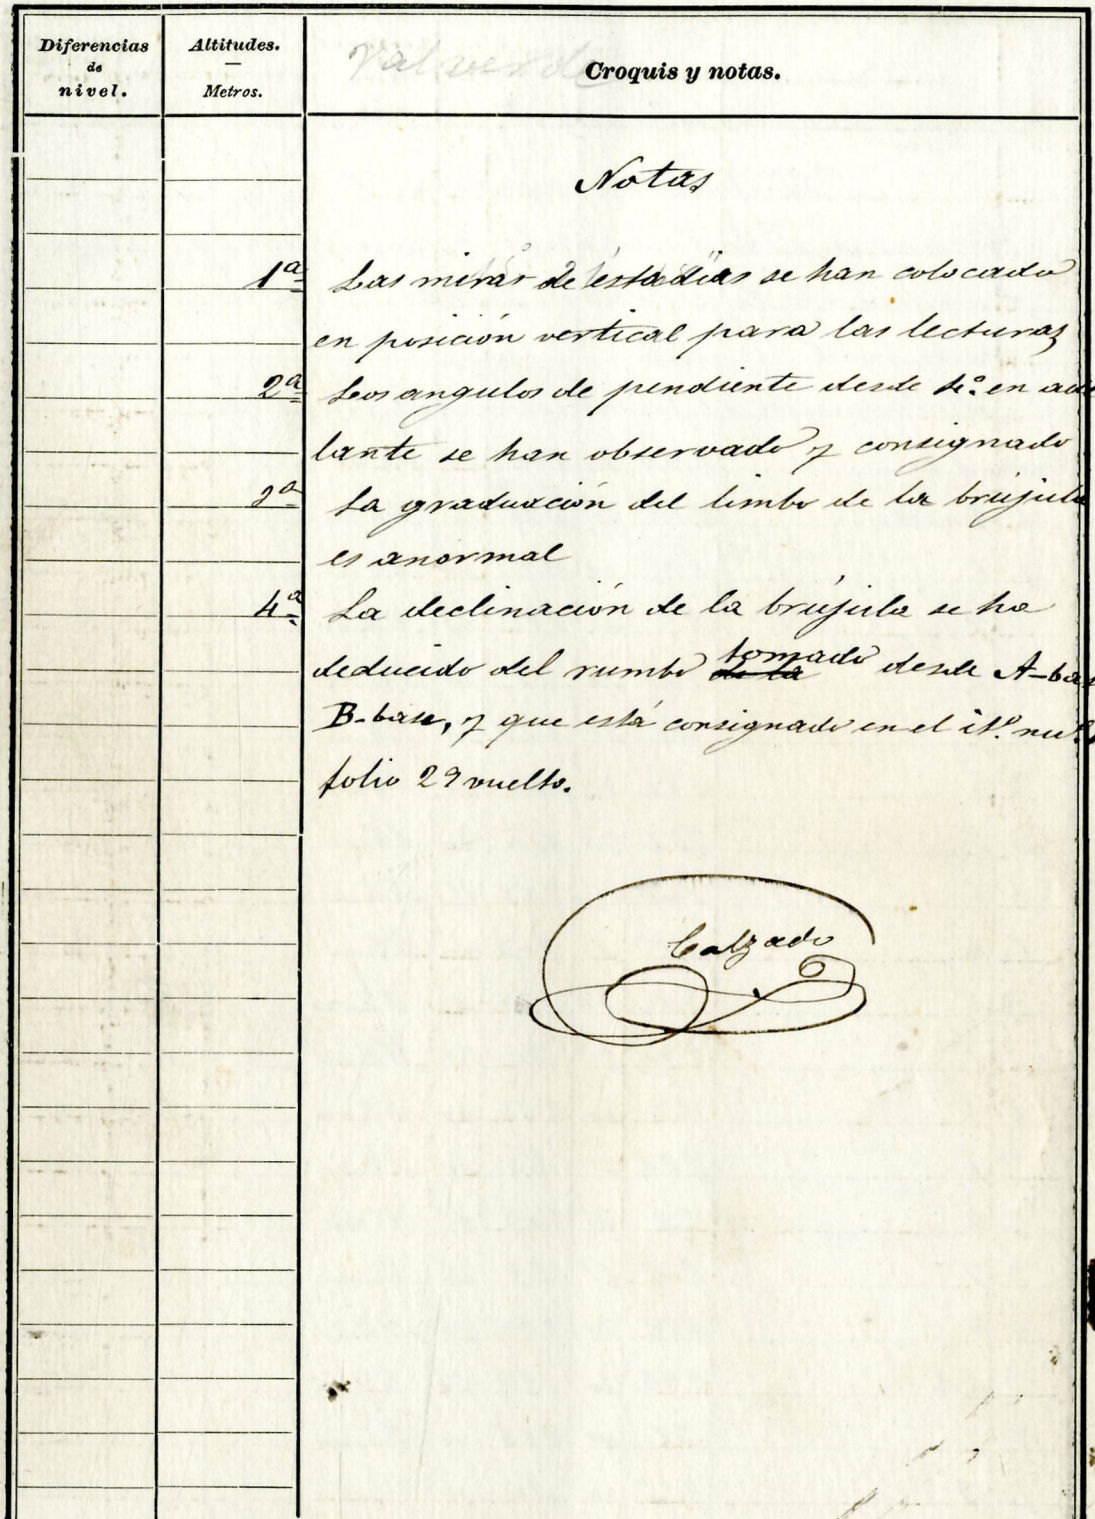 Diferencias
de
nivel.
Altitudes.
Metros.
Valverde
Croquis y notas.
Notas
1ª Las miras de estadias se han colocado
en posición vertical para las lecturas
2ª Los angulos de pendiente desde 4º en ade
lante se han observado y consignado
3ª La graduación del limbo de la brújula
es anormal
4ª La declinación de la brújula se ha
deducido del rumbo de la tomado desde A-bas
B-base, y que está consignado en el itº. nuº.
folio 29 vuelto.
Calzado